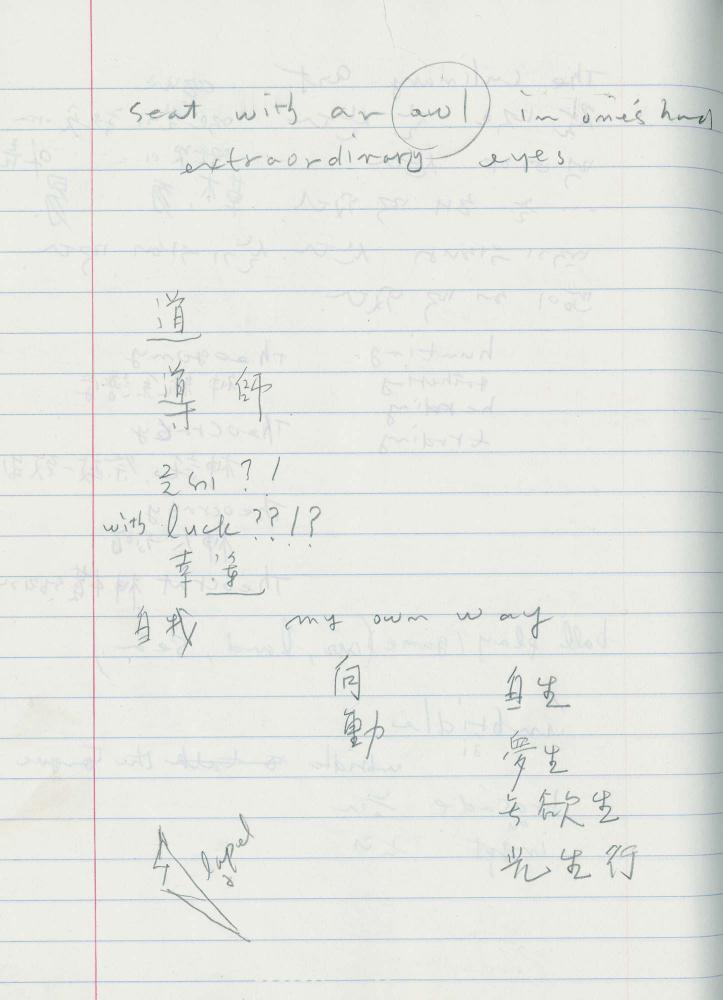 seat with an awl in one's hand
extraordinary eyes
道
導師
?!
with luck ??!?
幸運
自我 my own way
向 自生
動 夢生
欲生
先生行
lapel